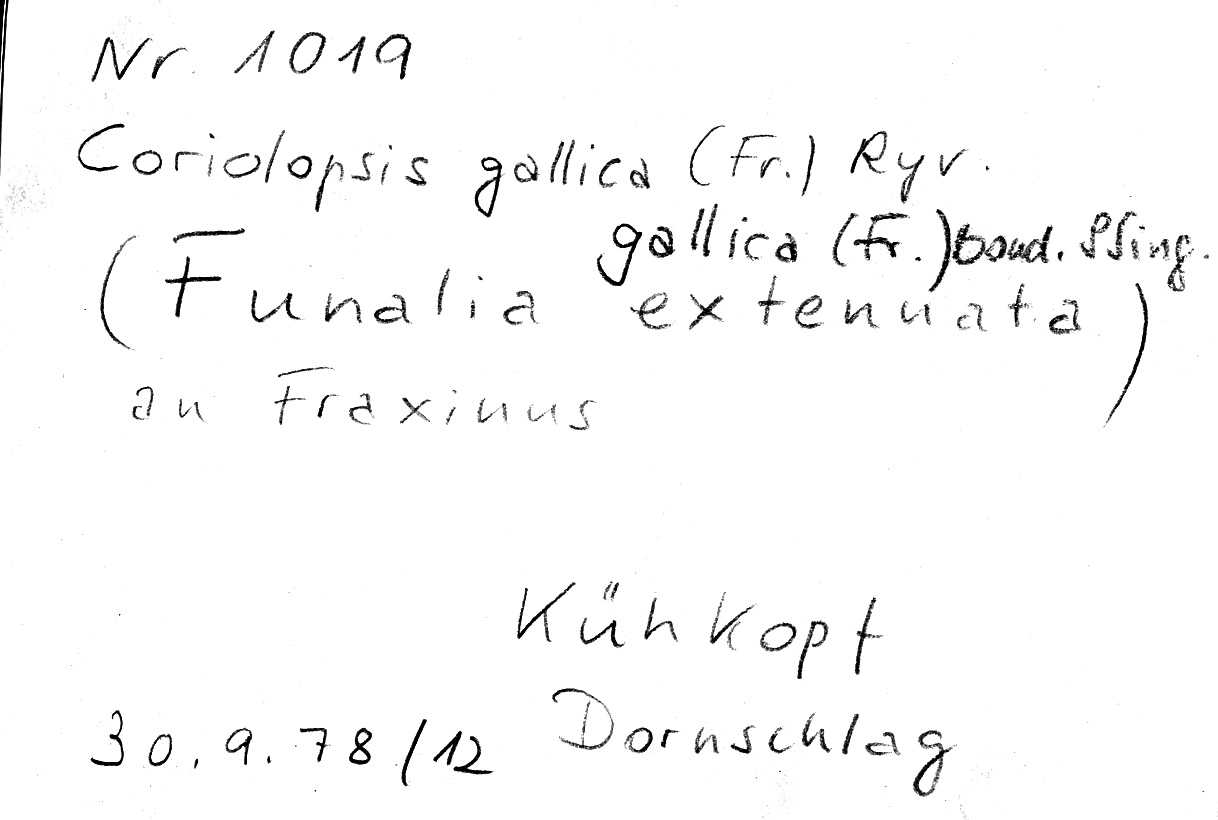 Nr. 1019
Coriolopsis gallica (Fr.) Ryv.
gallica (Fr.) bond. & Sing.
(Funalia extenuata)
an Fraxinus
Kühkopf
30.9.78/12 Dornschlag